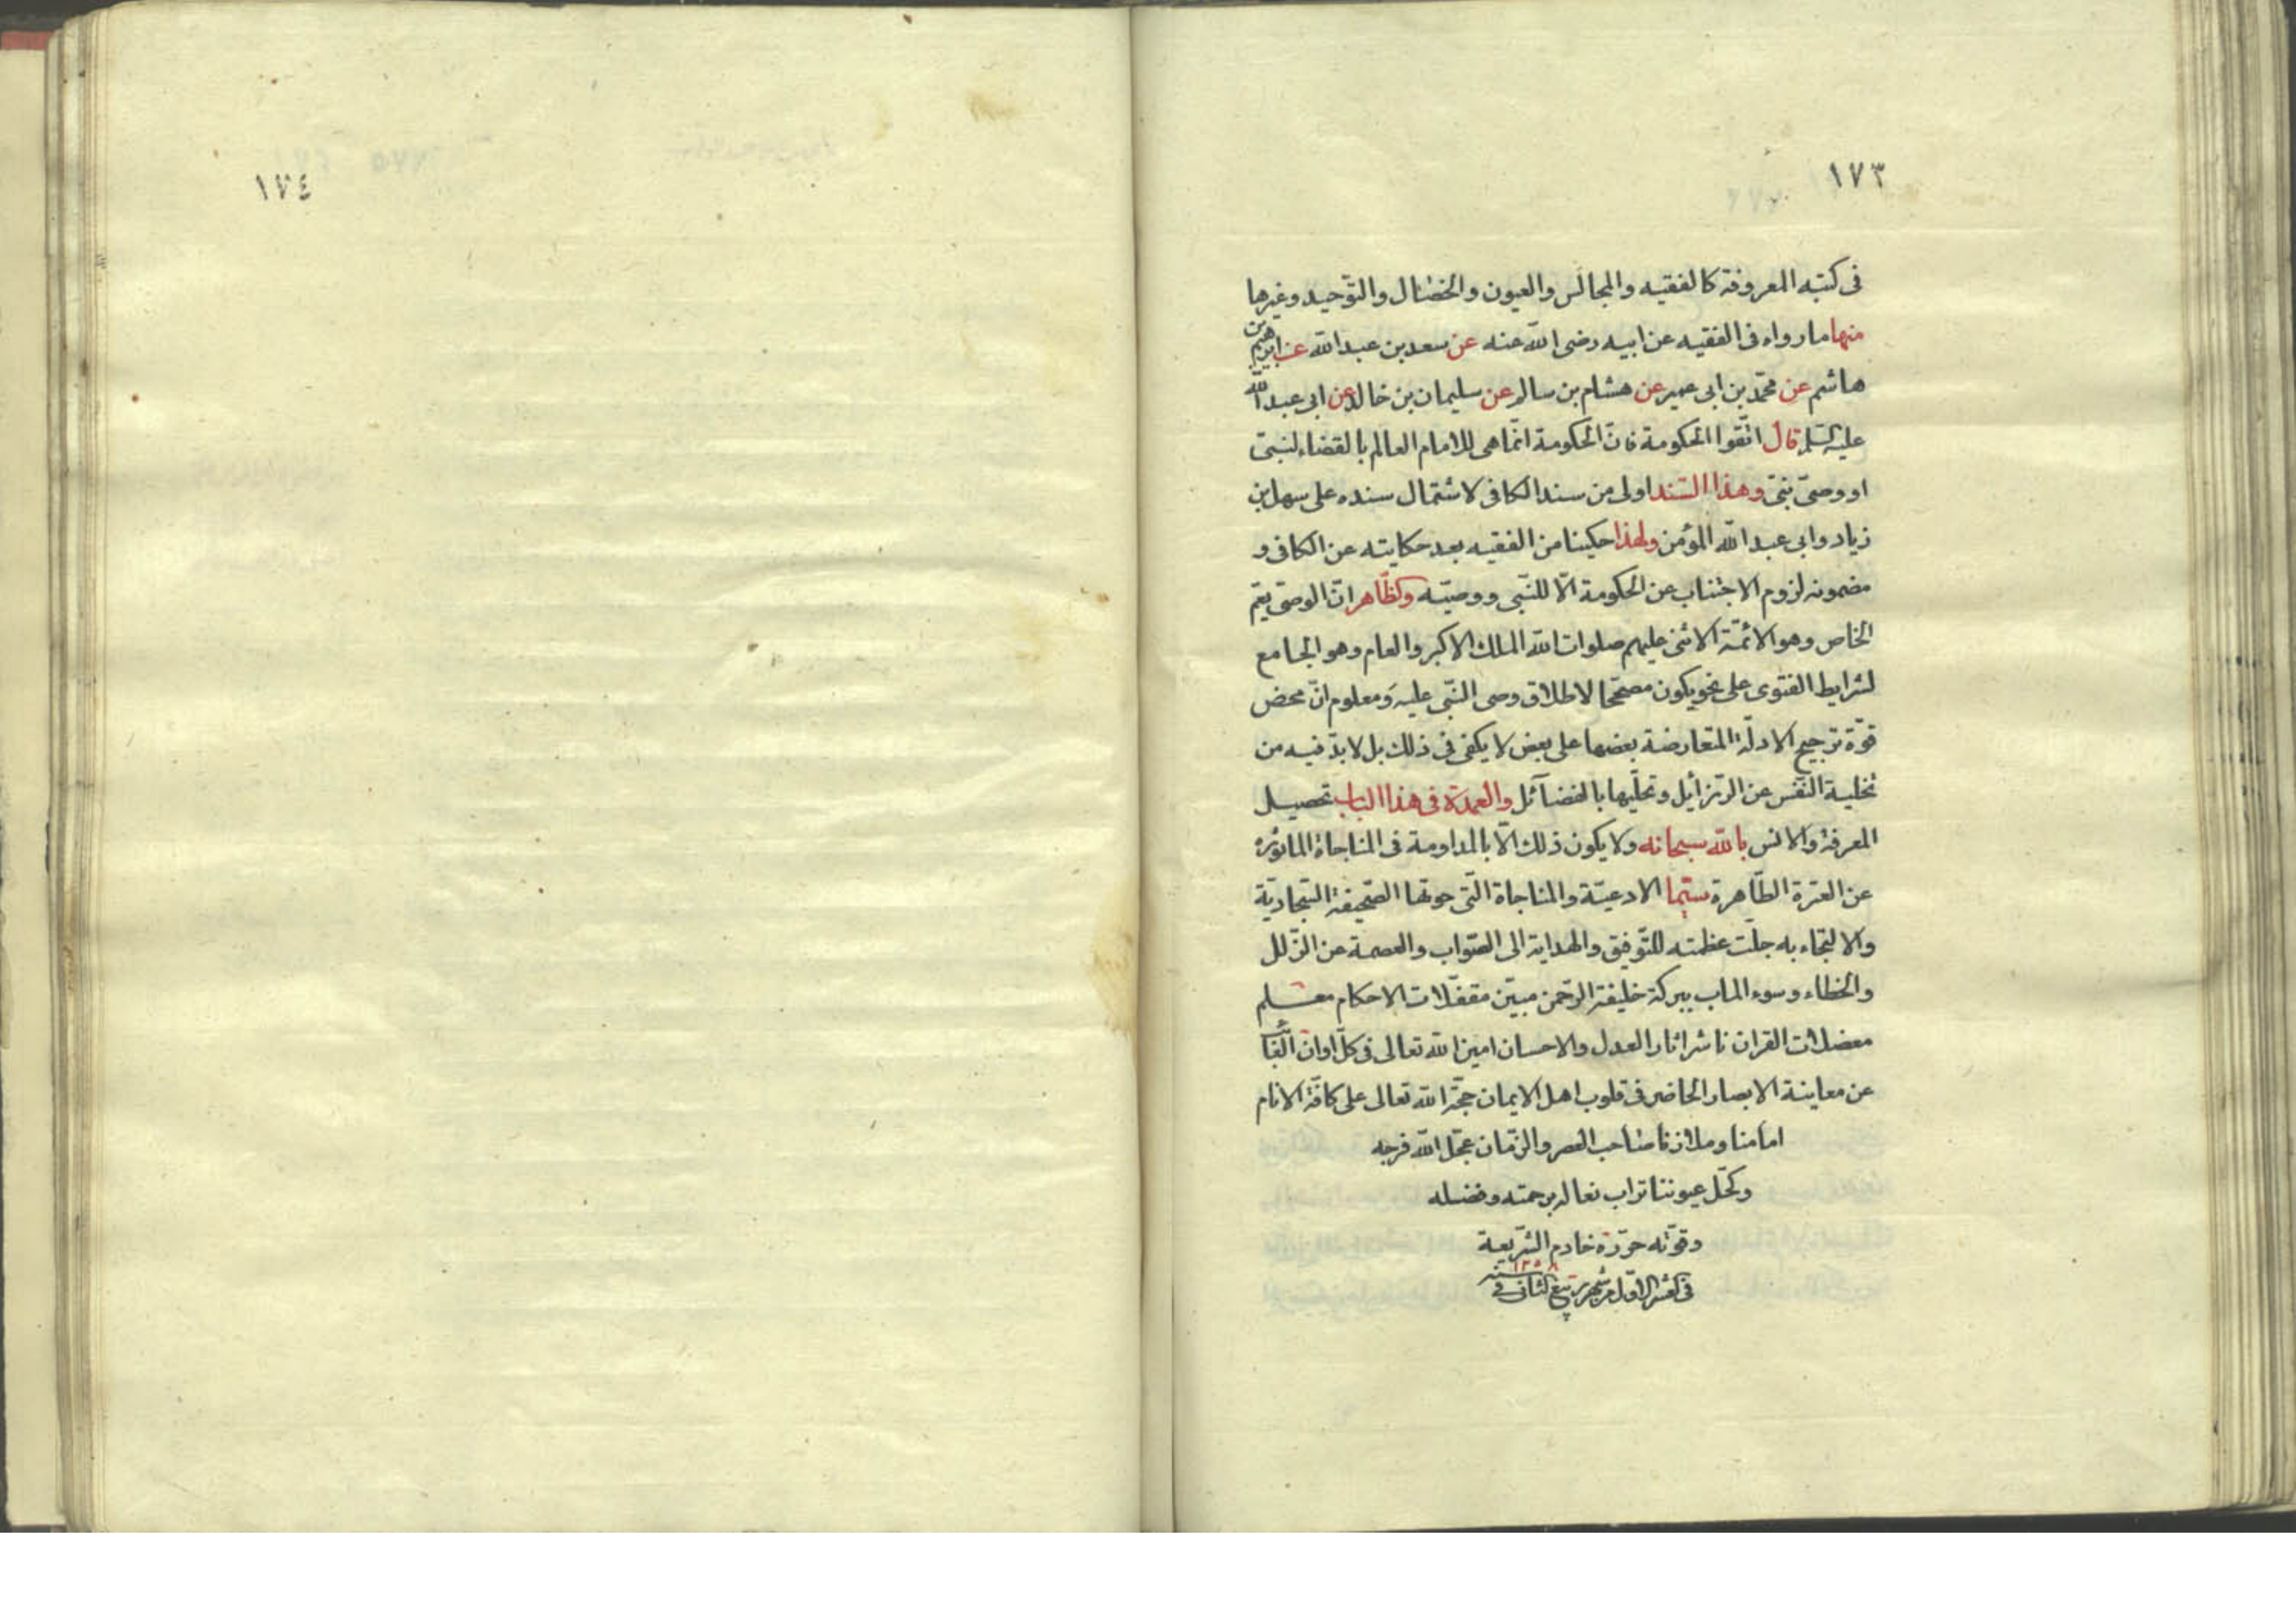 ١٧٣
فى كتبه المعروفة كالفقيه والمجالس والعيون والخصال والتوحيد وغيرها
منها ما رواه فى الفقيه عن ابيه رضى الله عنه عن سعد بن عبد الله عن ابرهيم بن
هاشم عن محمّد بن ابى عمير عن هشام بن سالم عن سليمان بن خالد عن ابى عبد الله
عليه السلم قال اتّقوا الحكومة فانّ الحكومة انّما هى للامام العالم بالقضاء لنبىّ
او وصىّ نبىّ وهذا السّند اولى من سند الكافى لاشتمال سنده على سهل بن
زياد وابى عبد الله المؤمن ولهذا حكينا من الفقيه بعد حكايته عن الكافى و
مضمونه لزوم الاجتناب عن الحكومة الّا للنّبى ووصيّه والظّاهر انّ الوصى يعمّ
الخاص وهو الائمّة الاثنى عليهم صلوات الله الملك الاكبر والعام وهو الجامع
لشرايط الفتوى على نحو يكون مصحّحا لاطلاق وصى النّبى عليه ومعلوم انّ محض
قوّة ترجيح الادلّة المتعارضة بعضها على بعض لا يكفى فى ذلك بل لا بدّ فيه من
تخلية النّفس عن الرّزايل وتحلّيها بالفضآئل والعمدة فى هذا الباب تحصيل
المعرفة والانس بالله سبحانه ولا يكون ذلك الّا بالمداومة فى المناجاة الماثورة
عن العترة الطّاهرة سيّما الادعيّة والمناجاة الّتى حوتها الصّحيفة السّجاديّة
والالتجاء به جلّت عظمته للتّوفيق والهداية الى الصّواب والعصمة عن الزّلل
والخطاء وسوء الماب ببركة خليفة الرّحمن مبيّن مقفلات الاحكام معلم
معضلات القران ناشر اثار العدل والاحسان امين الله تعالى فى كلّ اوان الغائب
عن معاينة الابصار الحاضر فى قلوب اهل الايمان حجّة الله تعالى على كافّة الانام
امامنا وملاذنا صاحب العصر والزّمان عجّل الله فرجه
وكحّل عيوننا تراب نعاله برحمته وفضله
وقوّته حرّره خادم الشّريعة
فى العشر الاوّل من شهر ربيع الثانى فى سنه
١٢٥٨
١٧٤